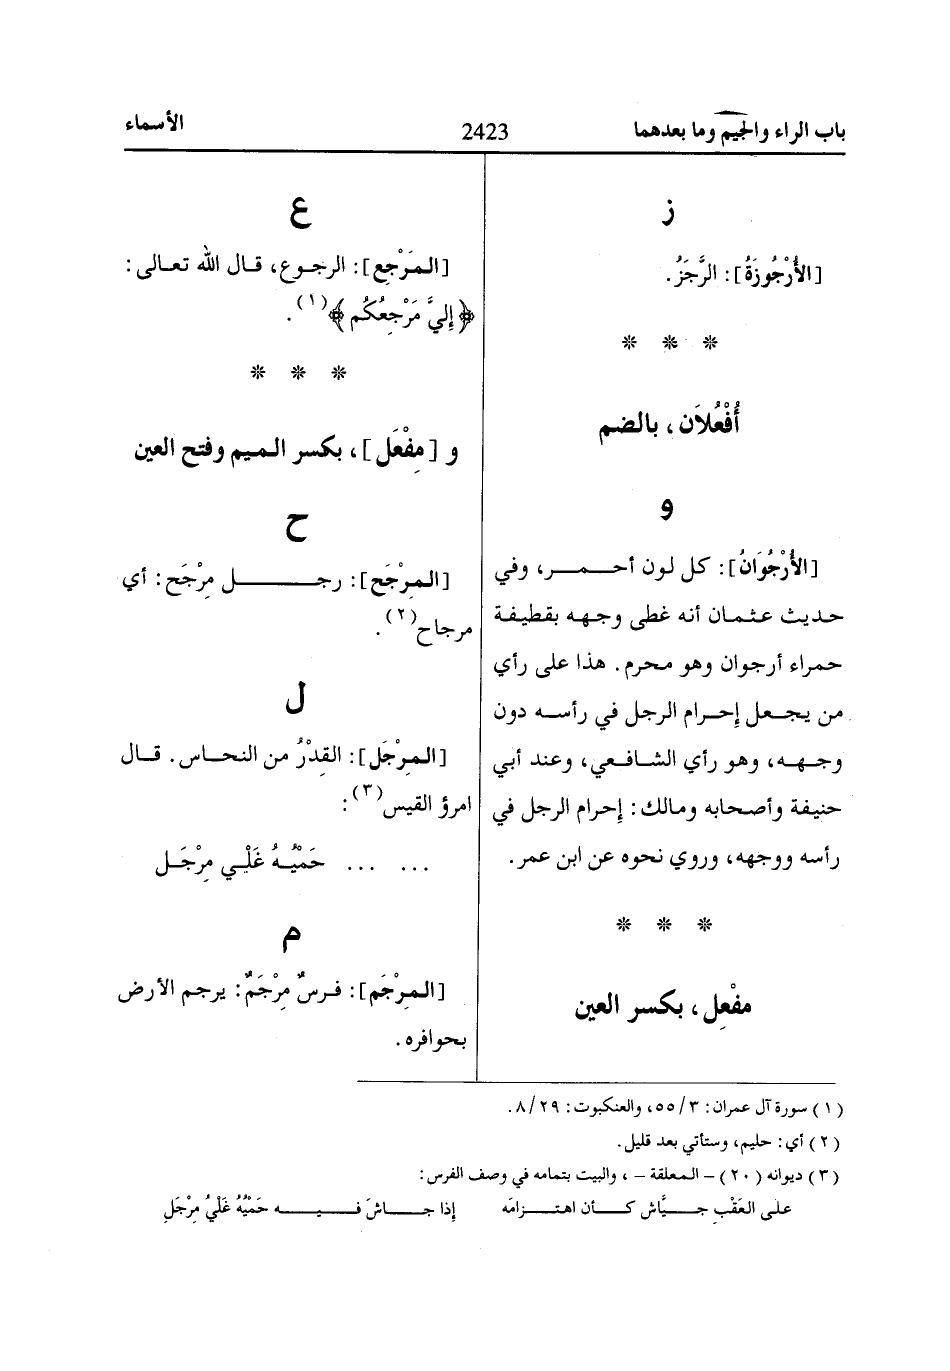 باب الراء والجيم وما بعدهما
2423
الأسماء
ز
[الأُرْجُوزَةُ]: الرَّجَزُ.
* * *
أُفْعُلاَن، بالضم
و
[الأُرْجُوَانُ]: كل لون أحمر، وفي
حديث عثمان أنه غطى وجهه بقطيفة
حمراء أرجوان وهو محرم. هذا على رأي
من يجعل إحرام الرجل في رأسه دون
وجهه، وهو رأي الشافعي، وعند أبي
حنيفة وأصحابه ومالك: إحرام الرجل في
رأسه ووجهه، وروي نحوه عن ابن عمر.
* * *
مفْعِل، بكسر العين
ع
[المَرْجِع]: الرجوع، قال الله تعالى:
﴿إِليَّ مَرْجِعُكُم﴾(١).
* * *
و [مِفْعَل]، بكسر الميم وفتح العين
ح
[المِرْجَح]: رجل مِرْجَح: أي
مرجاح(٢).
ل
[المِرْجَل]: القِدْرُ من النحاس. قال
امرؤ القيس(٣):
... ... حَمْيُهُ غَلْي مِرْجَل
م
[المِرْجَم]: فرسٌ مِرْجَمٌ: يرجم الأرض
بحوافره.
(١) سورة آل عمران: ٣/٥٥، والعنكبوت: ٢٩/٨.
(٢) أي: حليم، وستأتي بعد قليل.
(٣) ديوانه (٢٠) – المعلقة –، والبيت بتمامه في وصف الفرس:
على العَقْبِ جيَّاش كأن اهتزامَه إذا جاشَ فيه حَمْيُهُ غَلْيُ مِرْجَلِ